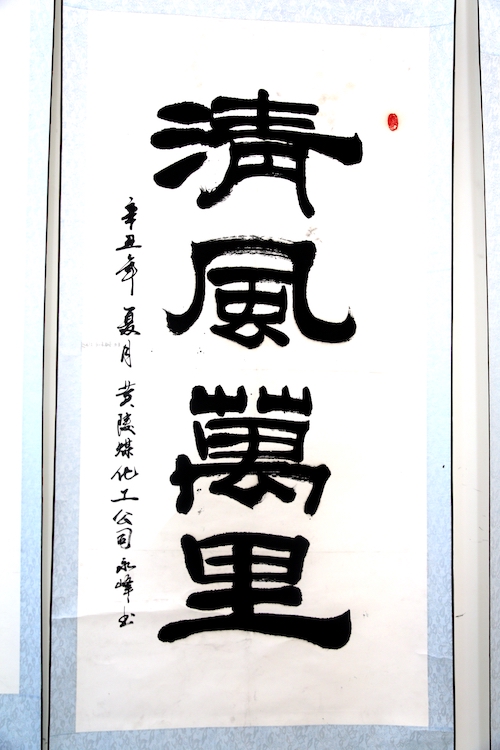 清風萬里
辛丑年夏月黄陵煤化工公司永峰书